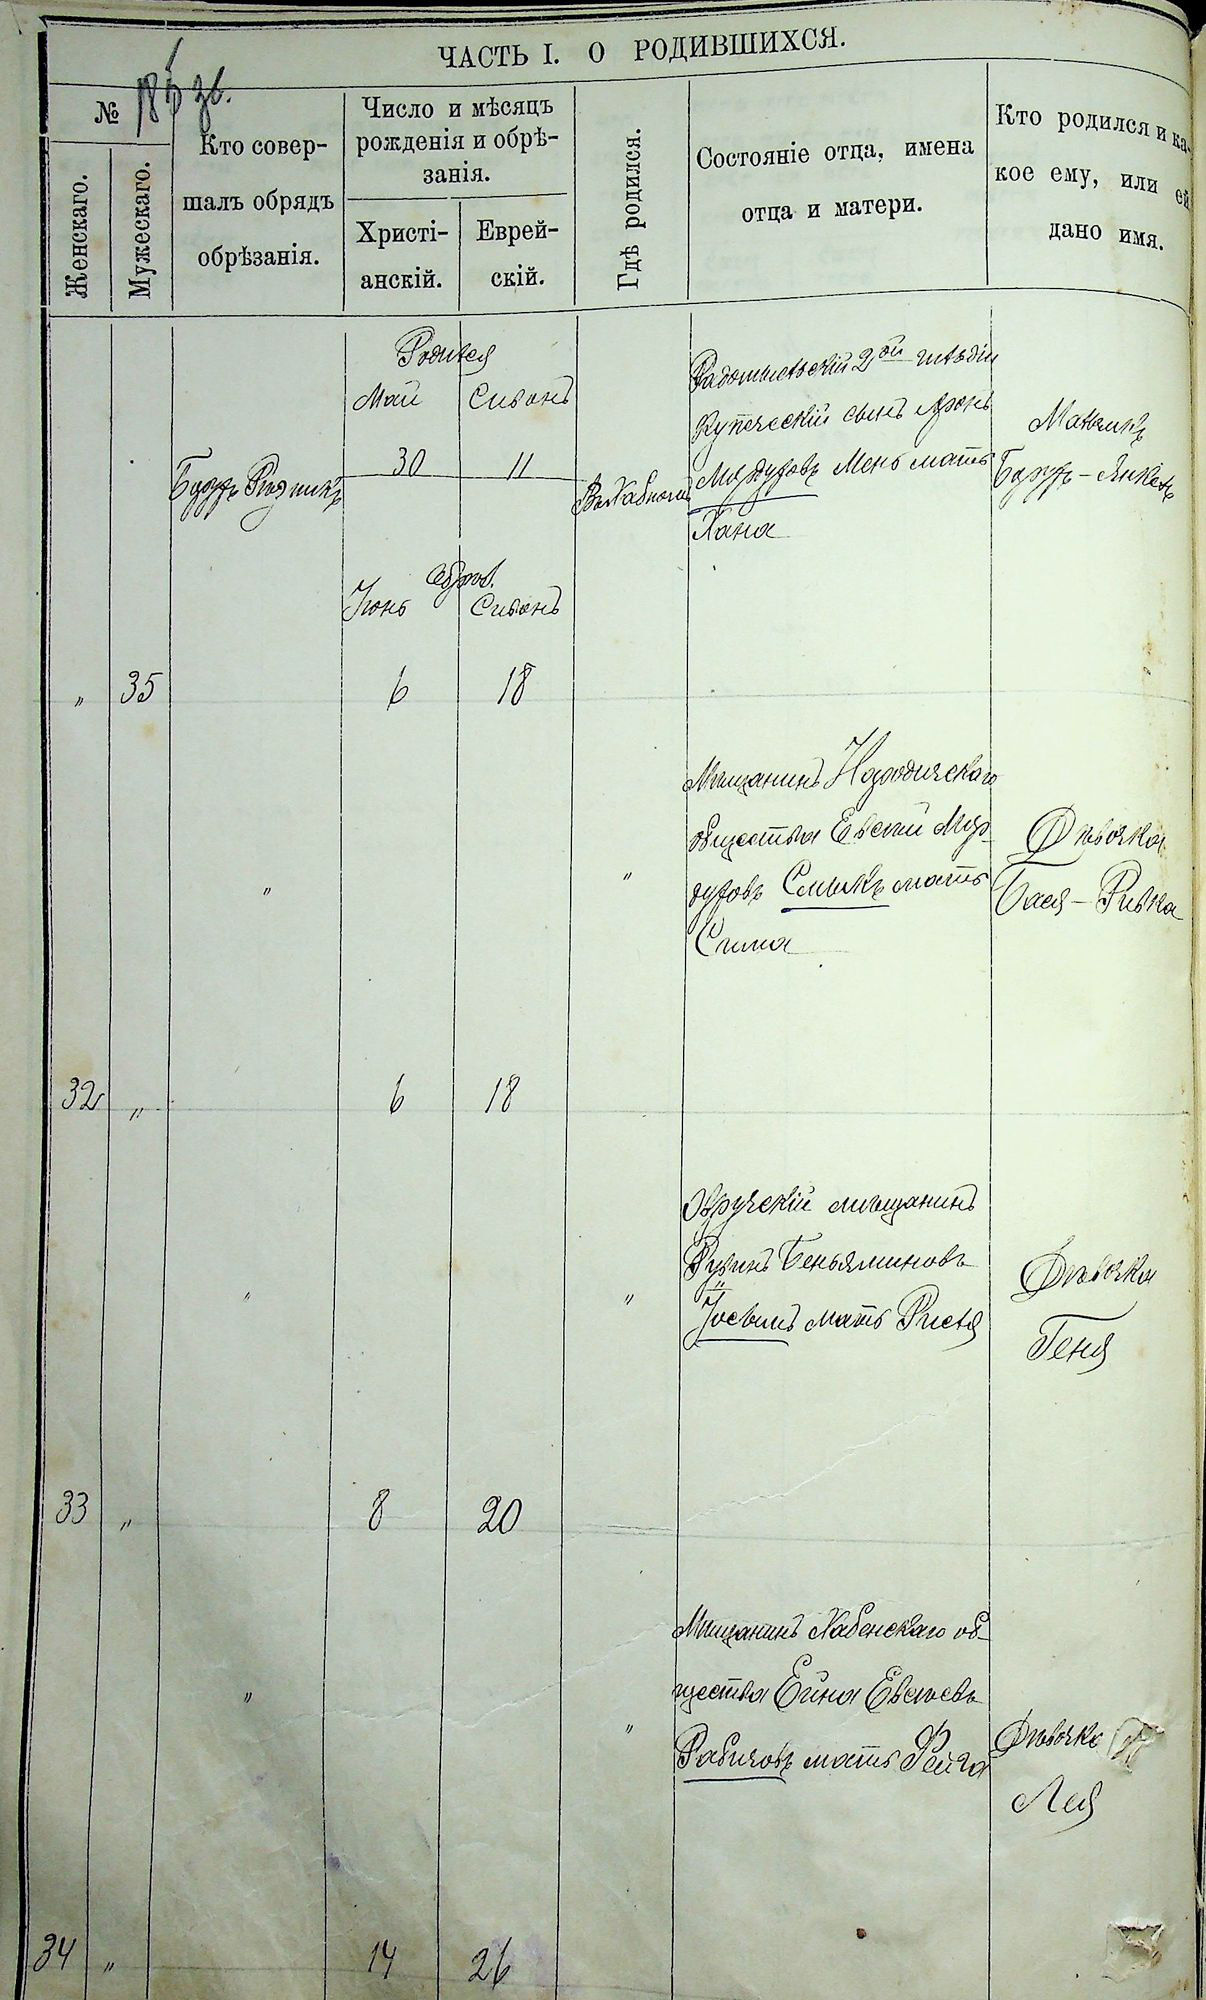 ЧАСТЬ I. О РОДИВШИХСЯ.
№
Женскаго.
Мужескаго.
Кто совер-
шалъ обрядъ
обрѣзанія.
Число и мѣсяцъ
рожденія и обрѣ-
занія.
Христі-
анскій.
Еврей-
скій.
Гдѣ родился.
Состояніе отца, имена
отца и матери.
Кто родился и ка-
кое ему, или ей
дано имя.
Родился
Май Сиванъ
30 11
Борухъ Рѣзникъ
Радомысльскій 2ой гильдіи
купеческій сынъ Аронъ
мать
Хана
Мальчикъ
Борухъ-Янкель
Обрѣз.
Іюнь Сиванъ
" 35 6 18
Мѣщанинъ Народичскаго
общества Евсей Мор-
духовъ мать
Сима
" "
Дѣвочка
Бася-Ривка
32 " 6 18
Овручскій мѣщанинъ
Рувинъ Беньяминовъ
мать
" "
Дѣвочка
Геня
33 " 8 20
Мѣщанинъ Хабенскаго об-
щества Евсеевъ
Рабиновъ мать Фейга
" "
Дѣвочка
Лея
34 " 14 26